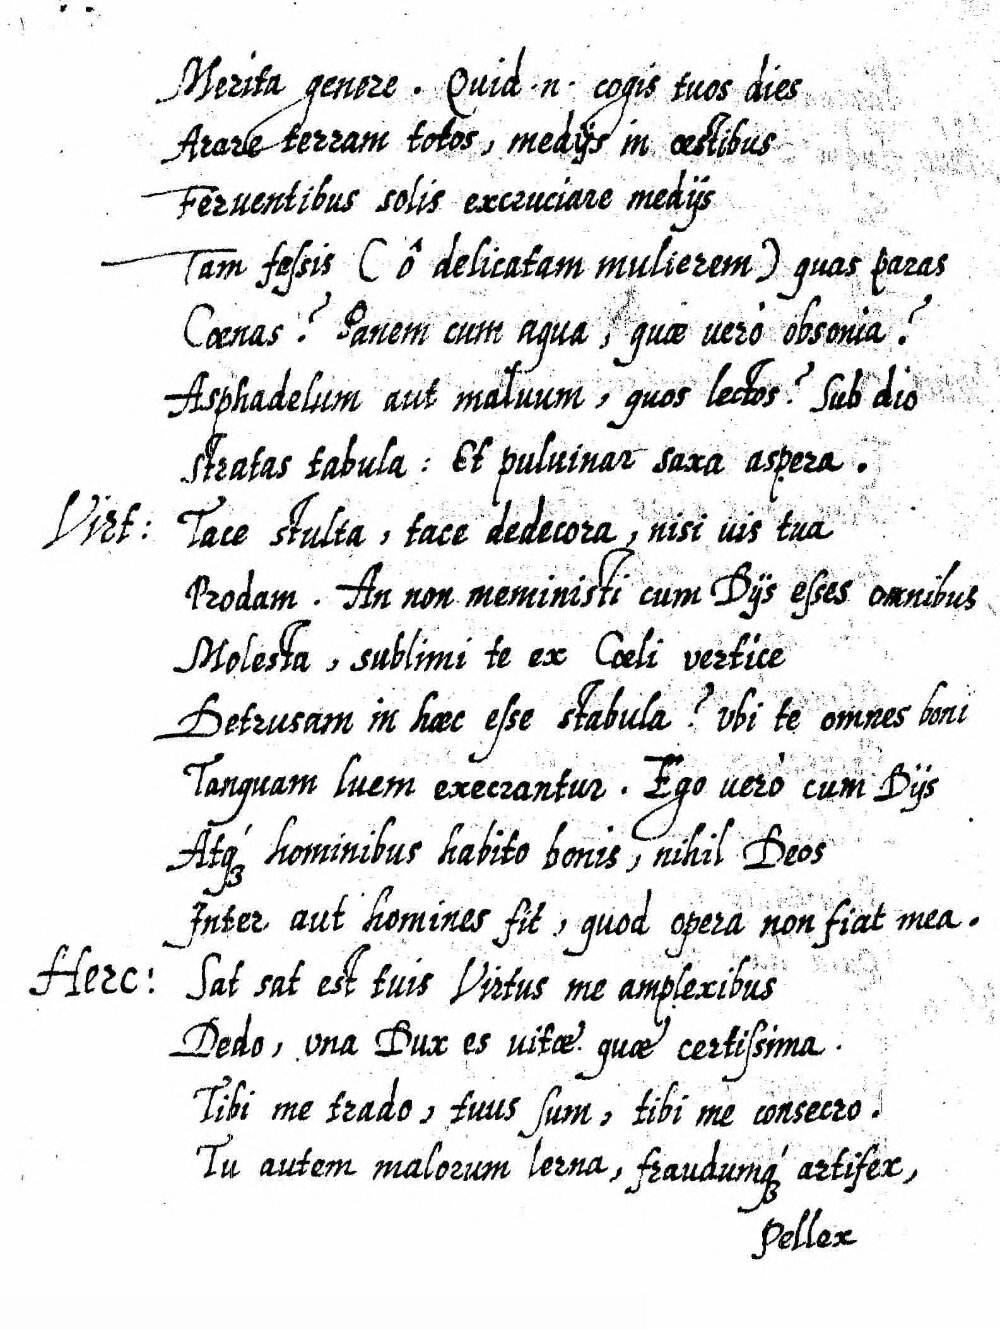 Merita genere. Quid .n. cogis tuos dies
Arare terram totos, medijs in æstibus
Feruentibus solis excruciare medijs
Tam fessis (ô delicatam mulierem) quas paras
Cœnas? Panem cum aqua, quæ uerò obsonia?
Asphadelum aut maluum, quos lectos? Sub dio
stratas tabula: Et puluinar saxa aspera.
Virt: Tace stulta, tace dedecora, nisi uis tua
Prodam. An non meministi cum Dijs esses omnibus
Molesta, sublimi te ex Cœli vertice
Detrusam in hæc esse stabula? vbi te omnes boni
Tanquam luem execrantur. Ego uerò cum Dijs
Atq́ꝫ hominibus habito bonis, nihil Deos
Inter aut homines fit, quod opera non fiat mea.
Herc: Sat sat est tuis Virtus me amplexibus
Dedo, vna Dux es uitæ quæ certissima.
Tibi me trado, tuus sum, tibi me consecro.
Tu autem malorum lerna, fraudumq́ꝫ artifex,
Pellex